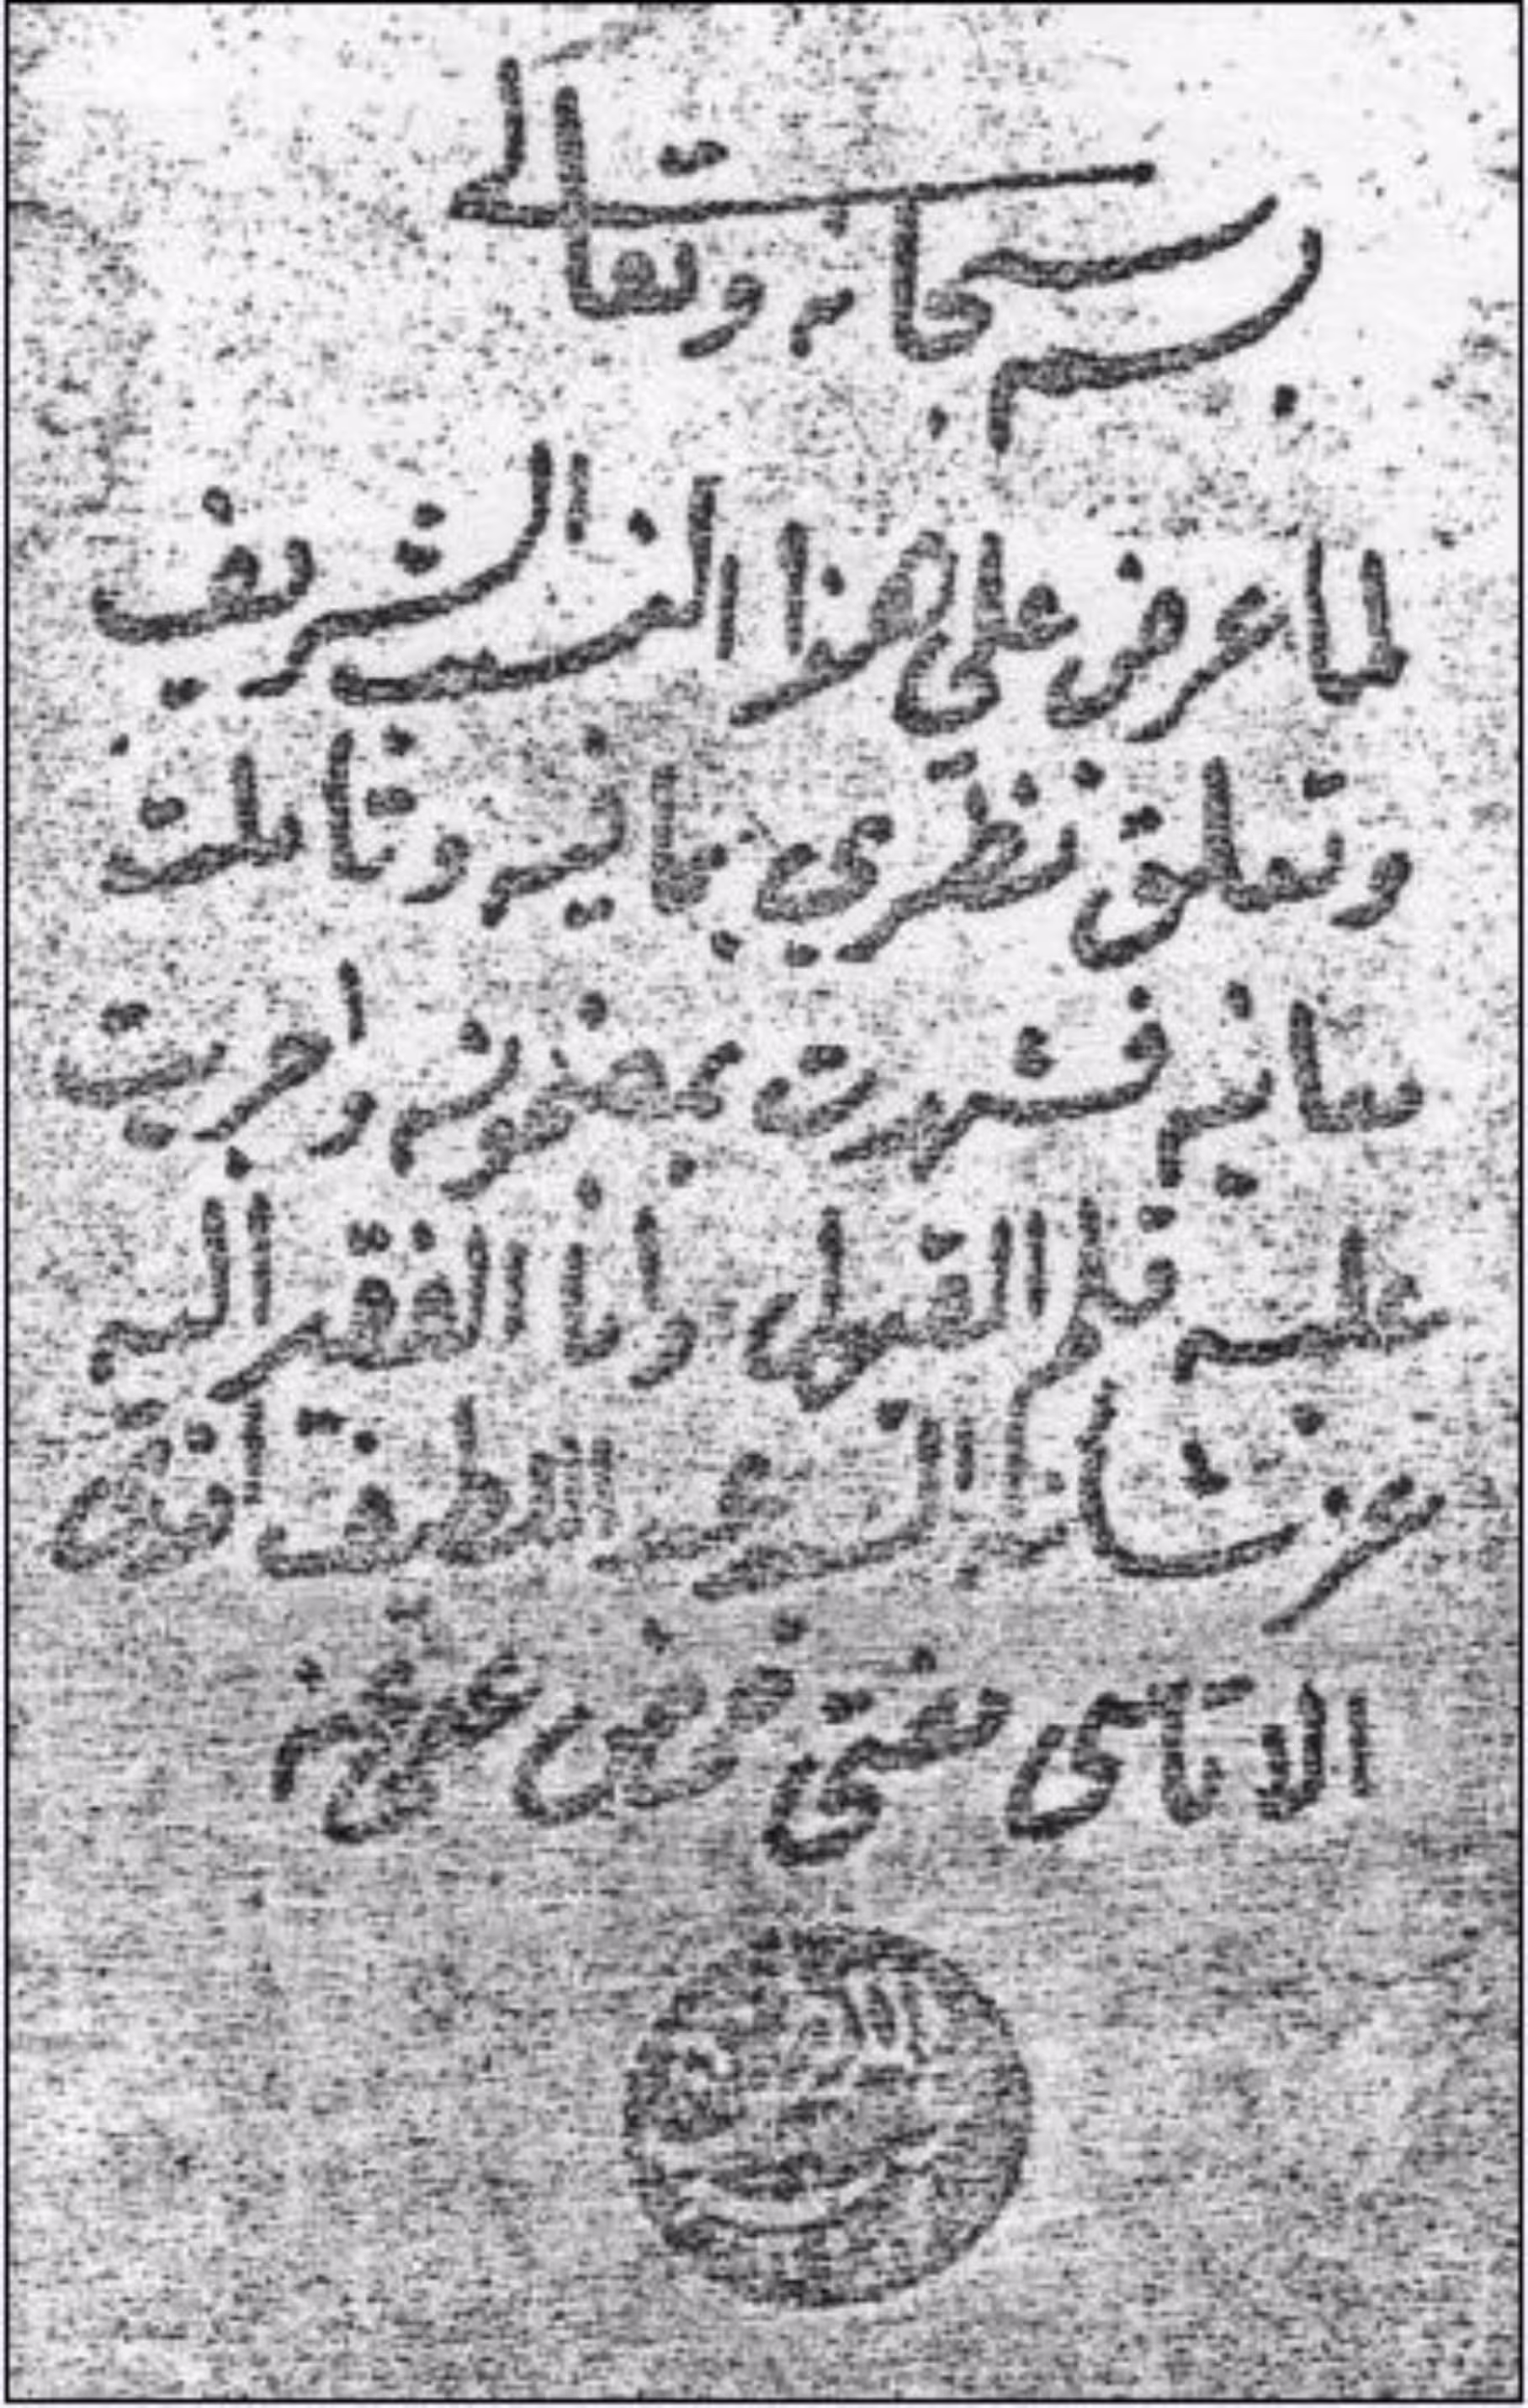 بسمه سبحانه وتعالى
لما عرض على هذا النسب الشريف
وتعلق نظري بمافيه وتأملت
معانيه فشهدت بمضمونه واجريت
عليه قلم القبول وانا الفقير اليه
عز شانه السيد عبد اللطيف افندي
الاتاسي مفتي حمص عفي عنه